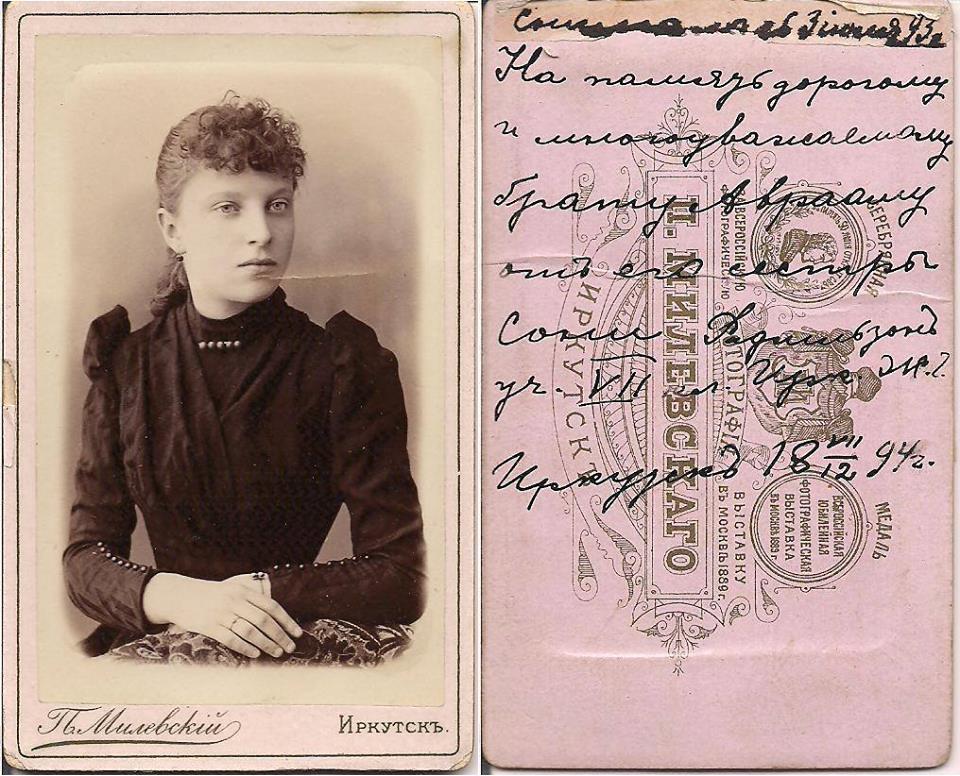 П. Милевскій
Иркутскъ.
3 іюня 93 г.
На память дорогому
и многоуважаемому
брату Аврааму
отъ его сестры
Сони
уч. VII кл. Ирк. Ж. Г.
Иркутскъ 18 VII/12 94 г.
П. МИЛЕВСКАГО
ИРКУТСКЪ
ВСЕРОССІЙСКУЮ
ФОТОГРАФИЧЕСКУЮ
ВЫСТАВКУ
ВЪ МОСКВѢ 1889 г.
СЕРЕБРЯНАЯ
МЕДАЛЬ
ВСЕРОССІЙСКАЯ
ЮБИЛЕЙНАЯ
ФОТОГРАФИЧЕСКАЯ
ВЫСТАВКА
ВЪ МОСКВѢ 1889 г.